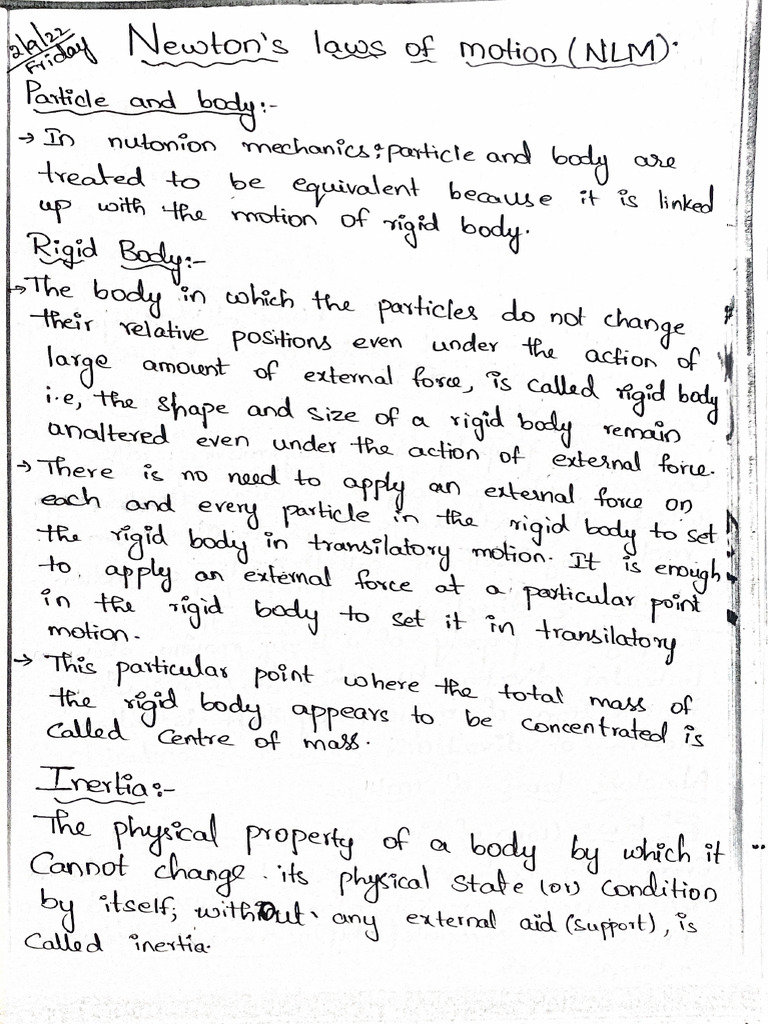 2/9/22
Friday
Newton's laws of motion (NLM).
Particle and body:-
→ In nutonion mechanics; particle and body are
treated to be equivalent because it is linked
up with the motion of rigid body.
Rigid Body:-
→ The body in which the particles do not change
their relative positions even under the action of
large amount of external force, is called rigid body
i.e, the shape and size of a rigid body remain
analtered even under the action of external force.
→ There is no need to apply an external force on
each and every particle in the rigid body to set
the rigid body in transilatory motion. It is enough
to apply an external force at a particular point
in the rigid body to set it in transilatory
motion.
→ This particular point where the total mass of
the rigid body appears to be concentrated is
called centre of mass.
Inertia:-
The physical property of a body by which it
Cannot change its physical state (or) condition
by itself, without any external aid (support), is
called inertia.